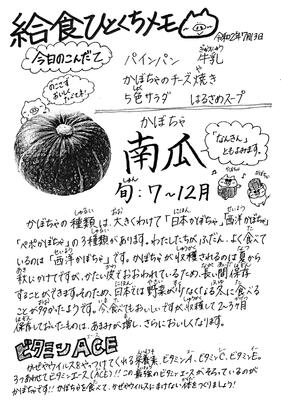 給食ひとくちメモ
令和2年7月3日
今日のこんだて
パインパン 牛乳
かぼちゃのチーズ焼き
5色サラダ はるさめスープ
のこさず
おいしく
たべてね!
かぼちゃ
南瓜
「なんきん」
ともよみます。
旬:7〜12月
かぼちゃの種類は、大きくわけて「日本かぼちゃ」「西洋かぼちゃ」
「ペポかぼちゃ」の3種類があります。わたしたちがふだん、よく食べて
いるのは「西洋かぼちゃ」です。かぼちゃが収穫されるのは夏から
秋にかけてですが、かたい皮でおおわれているため、長い間、保存
することができます。そのため、日本では野菜が少なくなる冬に食べる
ことが多かったようです。今、食べてもおいしいですが、収穫して2〜3ヶ月
保存しておいたものは、あまみが増し、さらにおいしくなります。
ビタミンACE
かぜやウイルスをやっつけてくれる栄養素、ビタミンA、ビタミンC、ビタミンE。
3つあわせてビタミンエース(ACE)!!この最強のビタミンエースがそろっているのが
かぼちゃです!!かぼちゃを食べて、かぜやウイルスにまけない体をつくりましょう!